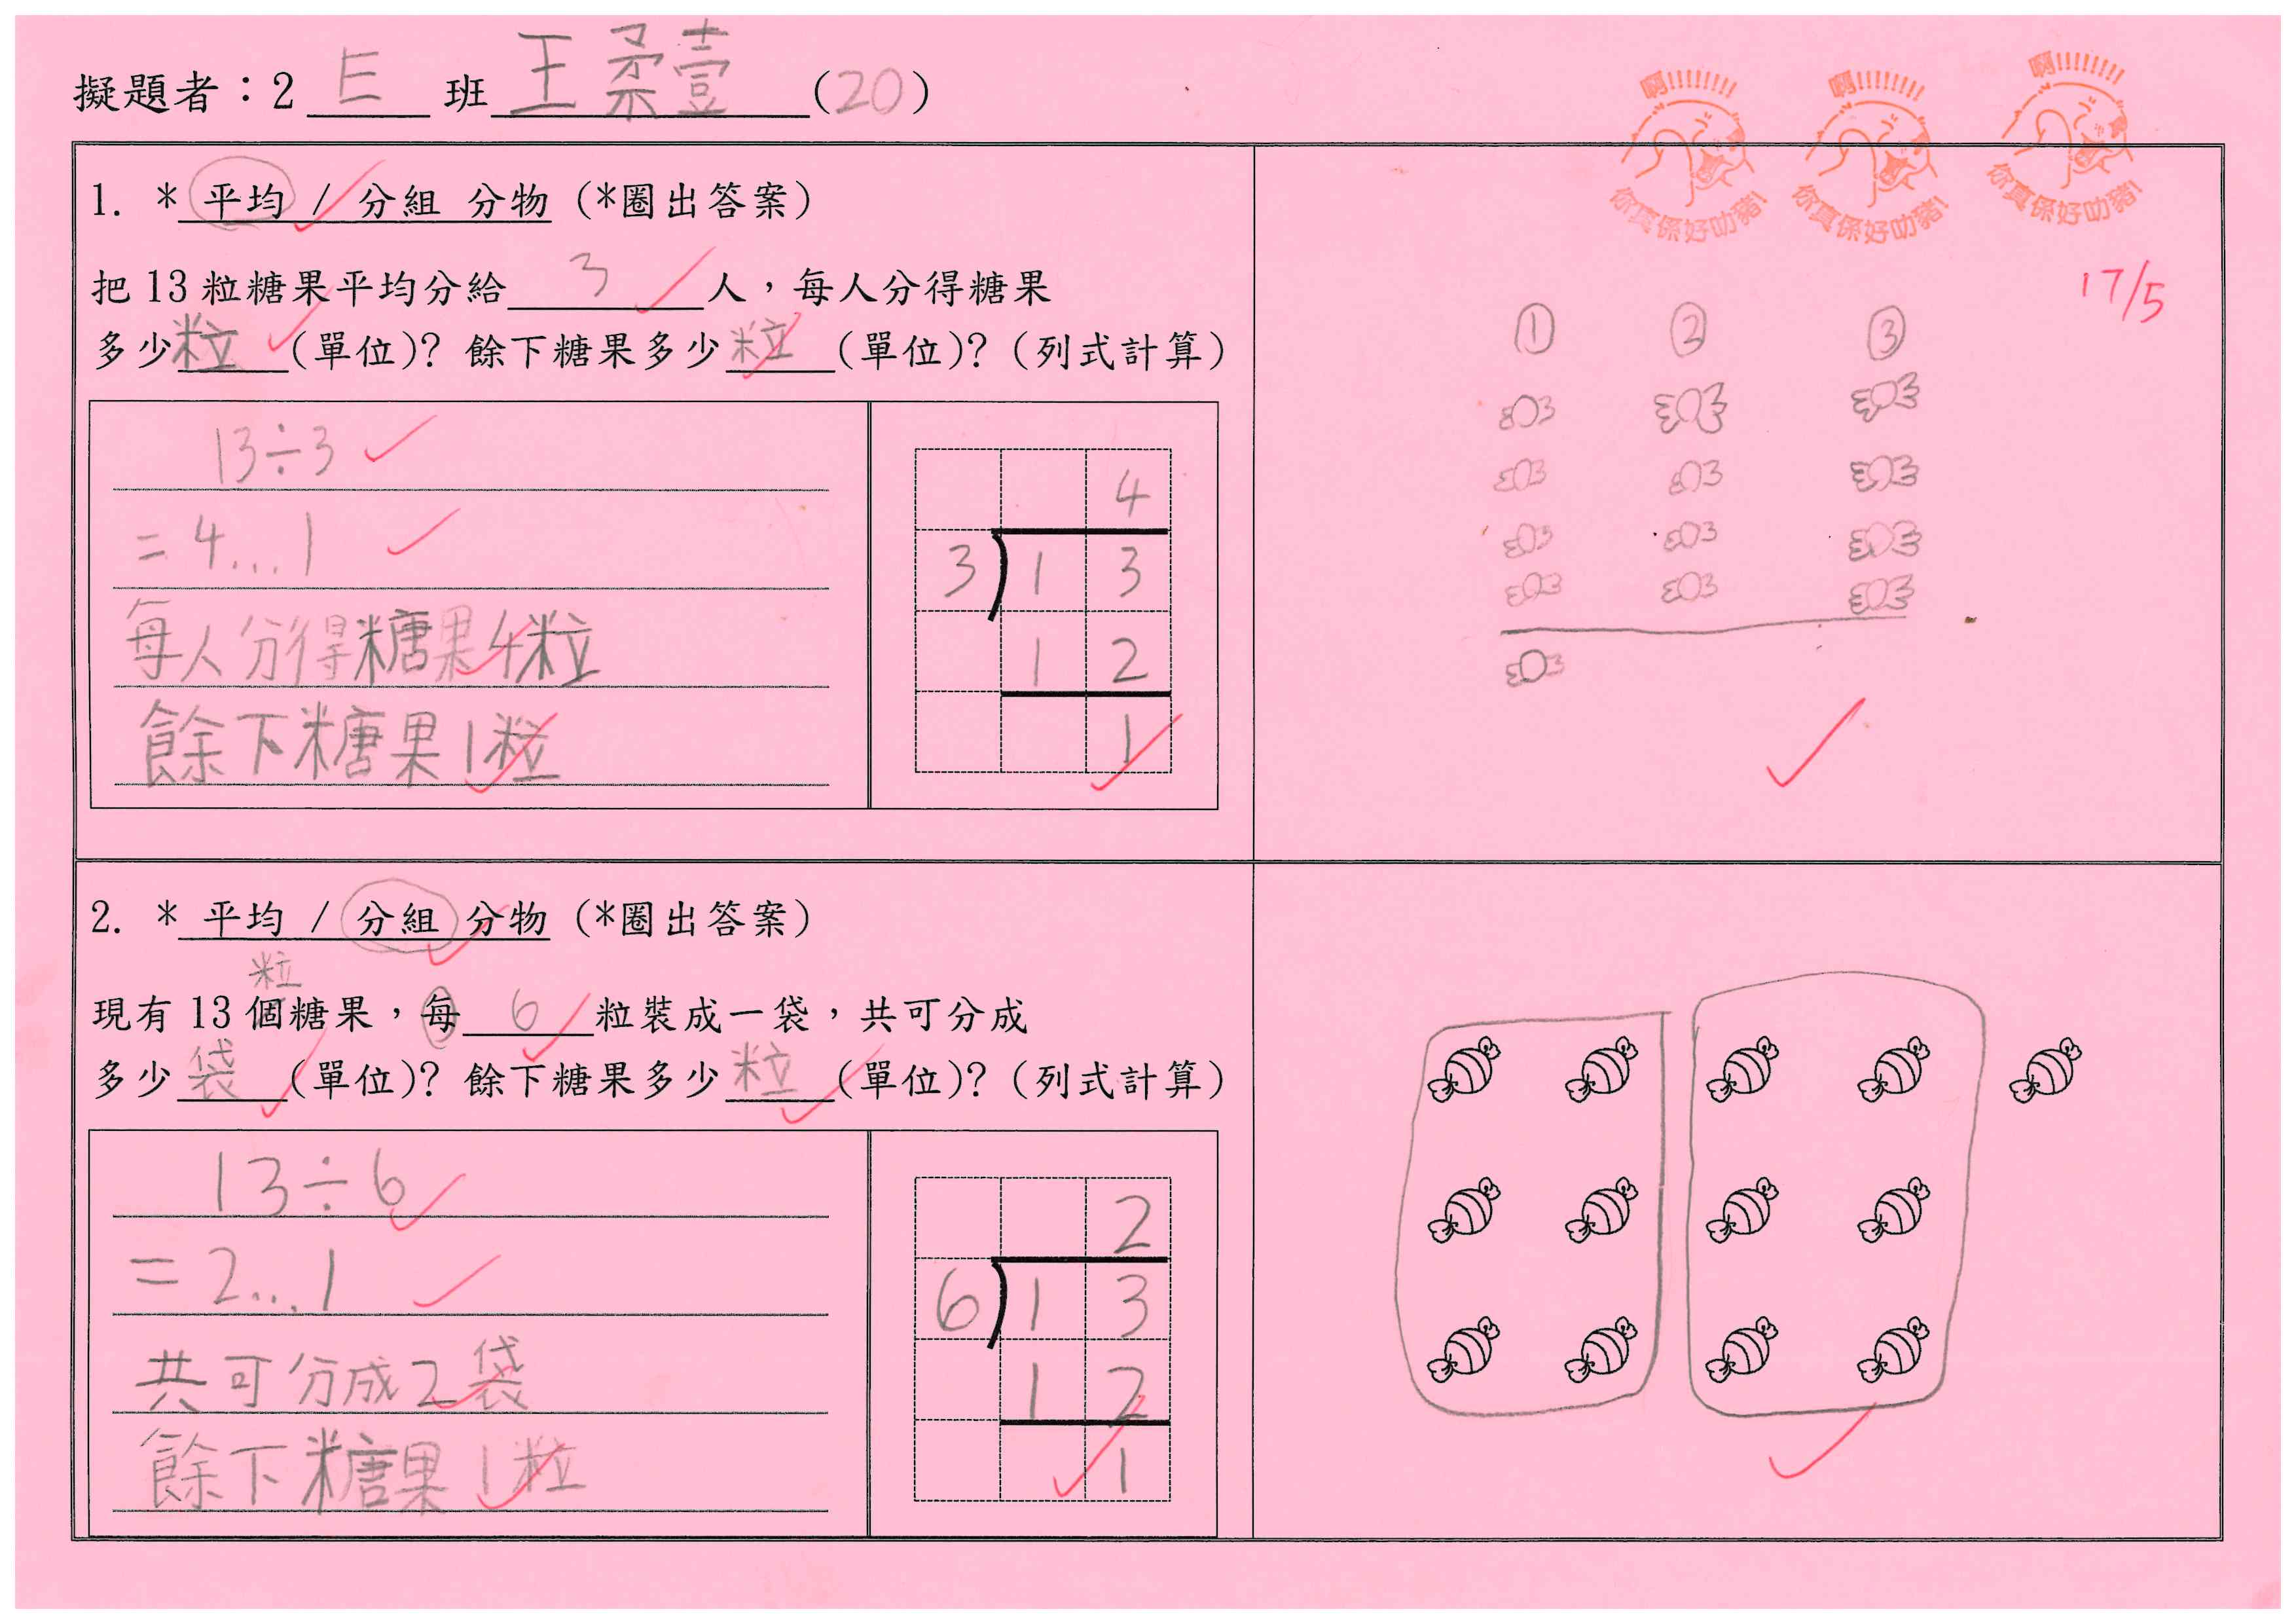 擬題者：2 E 班 王柔壹 (20)
啊!!!!!!!! 啊!!!!!!!! 啊!!!!!!!!
你真係好叻豬! 你真係好叻豬! 你真係好叻豬!
17/5
1. * 平均 / 分組 分物 (*圈出答案)
把 13 粒糖果平均分給 3 人，每人分得糖果
多少粒 (單位)? 餘下糖果多少粒 (單位)? (列式計算)
13÷3
=4...1
每人分得糖果4粒
餘下糖果1粒
4
3 1 3
1 2
1
① ② ③
2. * 平均 / 分組 分物 (*圈出答案)
粒
現有 13 個糖果，每 6 粒裝成一袋，共可分成
多少 袋 (單位)? 餘下糖果多少 粒 (單位)? (列式計算)
13÷6
=2...1
共可分成2袋
餘下糖果1粒
2
6 1 3
1 2
1